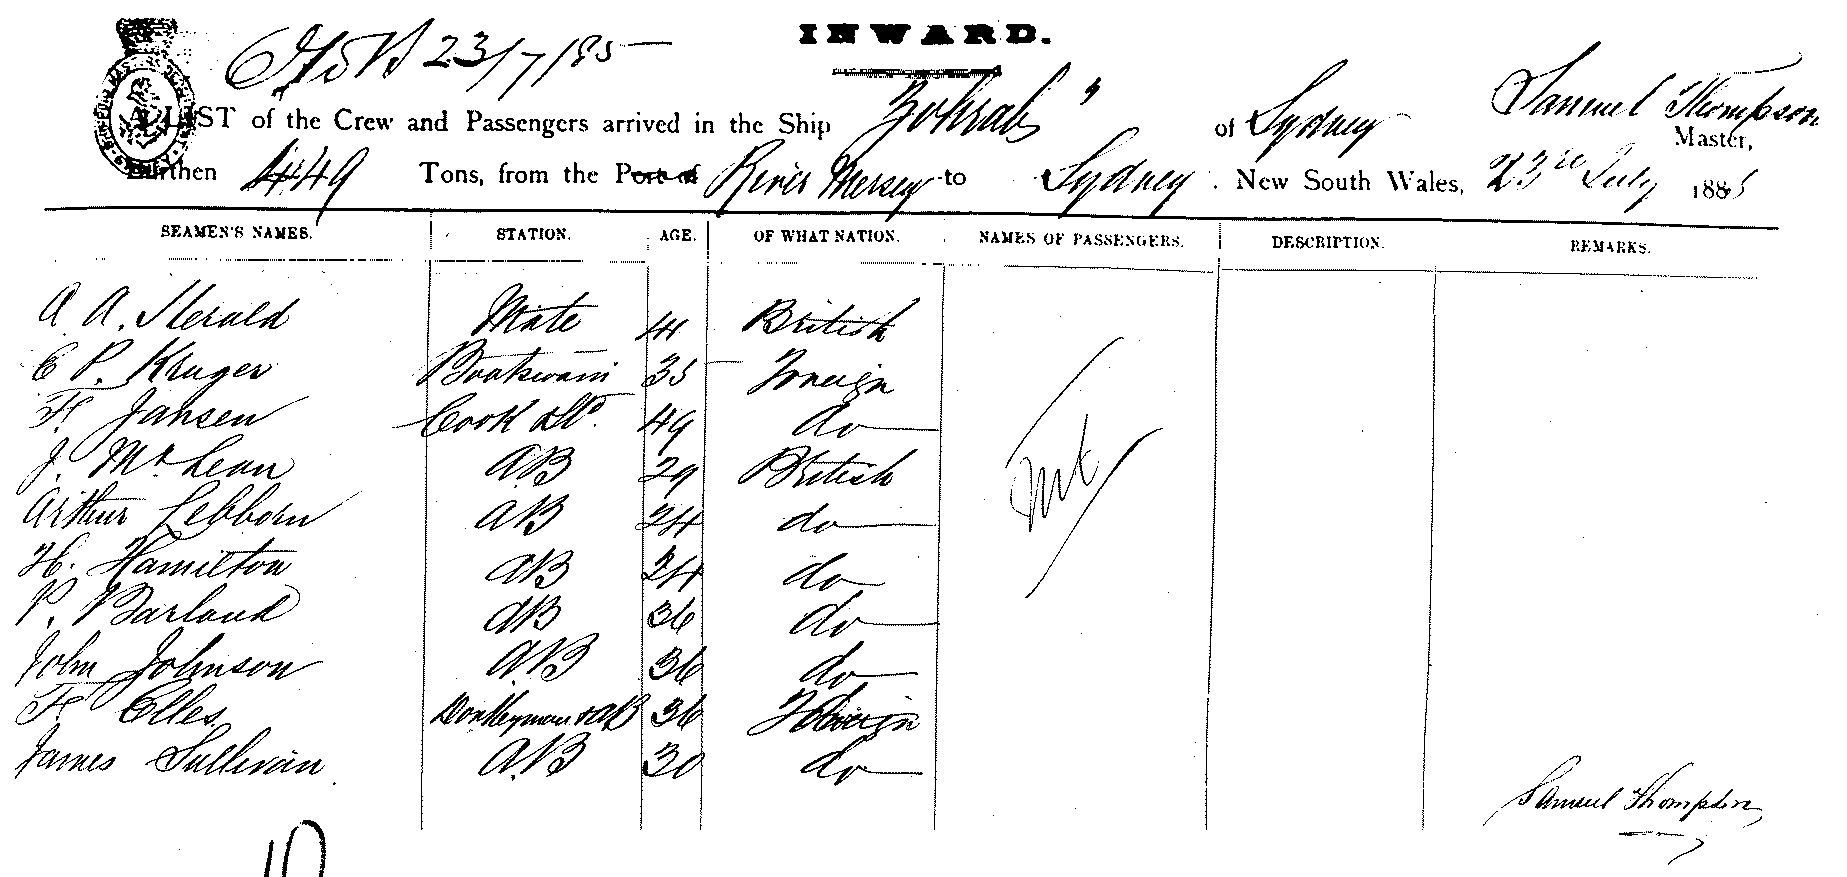 23/7/85
INWARD.
A LIST of the Crew and Passengers arrived in the Ship "Zohrab" of Sydney Samuel Thompson Master,
Burthen 449 Tons, from the Port of River Mersey to Sydney. New South Wales, 23rd July 1885
SEAMEN'S NAMES. STATION. AGE. OF WHAT NATION. NAMES OF PASSENGERS. DESCRIPTION. REMARKS.
A. A. Herald Mate 41 British
C P. Kruger Boatswain 35 Foreign
F. Jansen Cook & Std. 49 do
J. McLean AB 29 British
Arthur Lebborn AB 24 do
H. Hamilton AB 24 do
P. Barland AB 36 do
John Johnson AB 36 do
F. Elles Donkeyman & AB 36 Foreign
James Sullivan AB 30 do
Samuel Thompson
10